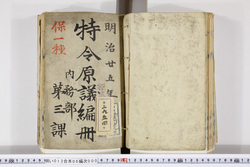 明治廿五年
特令原議編冊
内務部
第三課
保一種